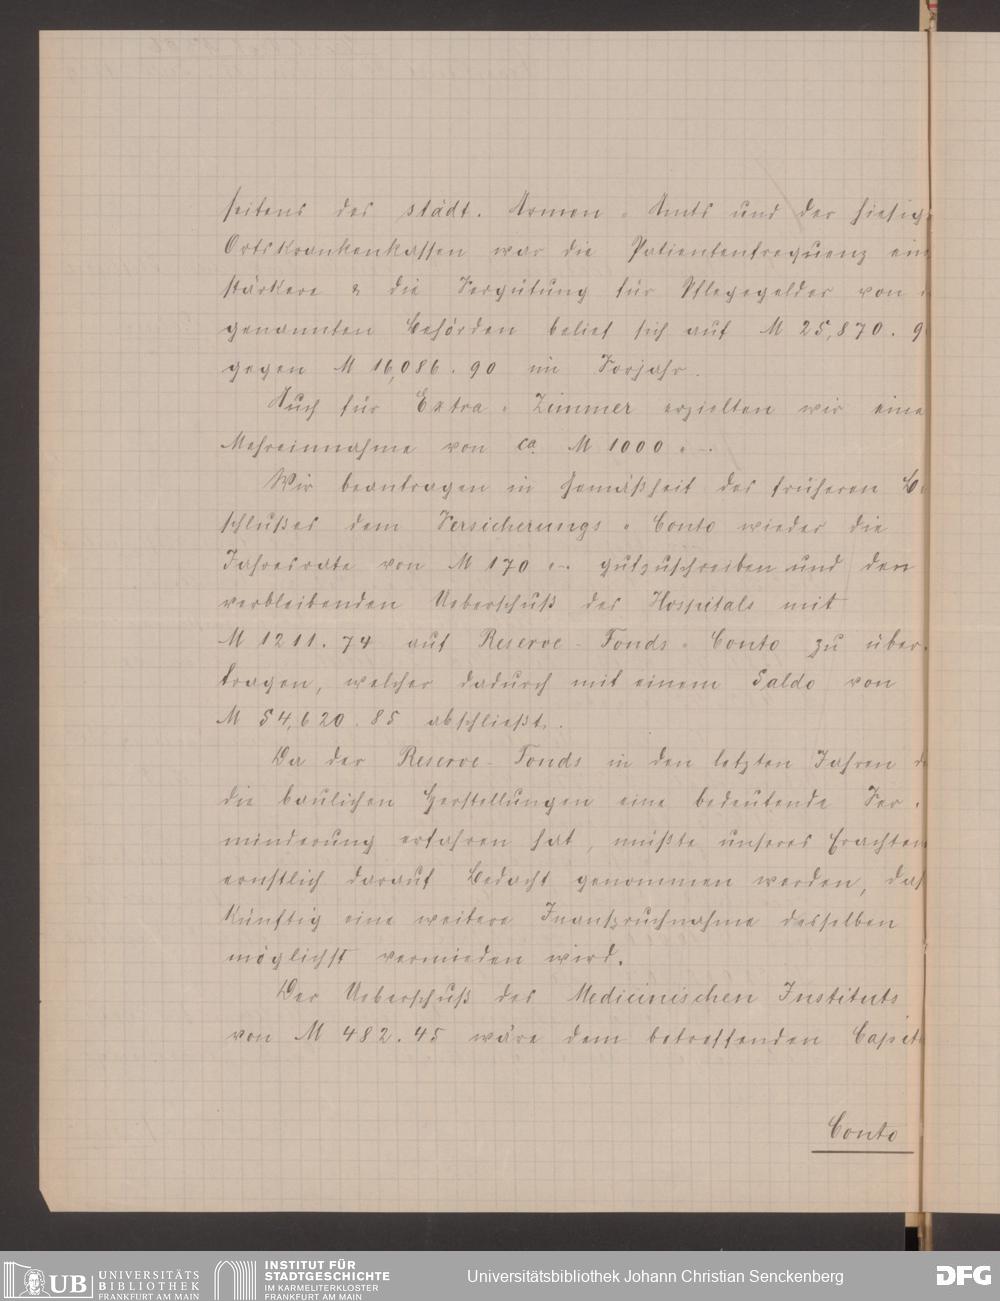 seitens des städt. Armen-Amts und der hiesig
Ortskrankenkassen war die Patientenfrequenz ein
stärkere & die Vergütung für Pflegegelder von
genannten Behörden belief sich auf M 25,870. 9
gegen M 16,086. 90 im Vorjahr.
Auch für Extra-Zimmer erzielten wir eine
Mehreinnahme von ca. M 1000.-.
Wir beantragen in Gemäßheit des früheren Be
schlußes dem Versicherungs-Conto wieder die
Jahresrate von M 170.-. gutzuschreiben und den
verbleibenden Ueberschuß des Hospitals mit
M 1211. 74 auf Reserve-Fonds-Conto zu über-
tragen, welcher dadurch mit einem Saldo von
M 54,620. 85 abschließt.
Da der Reserve-Fonds in den letzten Jahren d
die baulichen Herstellungen eine bedeutende Ver-
minderung erfahren hat, müßte unseres Erachten
ernstlich darauf Bedacht genommen werden, daß
künftig eine weitere Inanspruchnahme desselben
möglichst vermieden wird.
Der Ueberschuß des Medicinischen Instituts
von M 482. 45 wäre dem betreffenden Capit
Conto
UB UNIVERSITÄTS
BIBLIOTHEK
FRANKFURT AM MAIN
INSTITUT FÜR
STADTGESCHICHTE
IM KARMELITERKLOSTER
FRANKFURT AM MAIN
Universitätsbibliothek Johann Christian Senckenberg
DFG